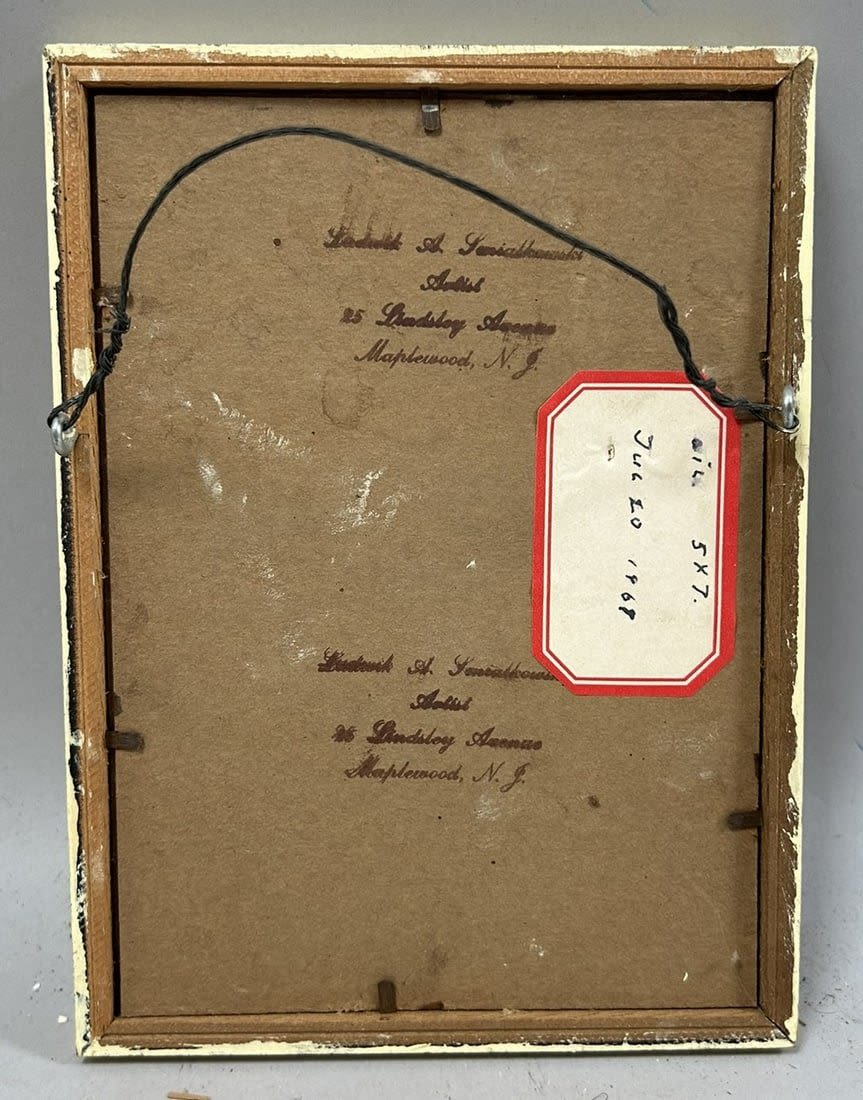 Ludwik A. Smialkowski
Artist
25 Lindsley Avenue
Maplewood, N. J.
oil 5 X 7.
1968
Ludwik A. Smialkowski
Artist
25 Lindsley Avenue
Maplewood, N. J.